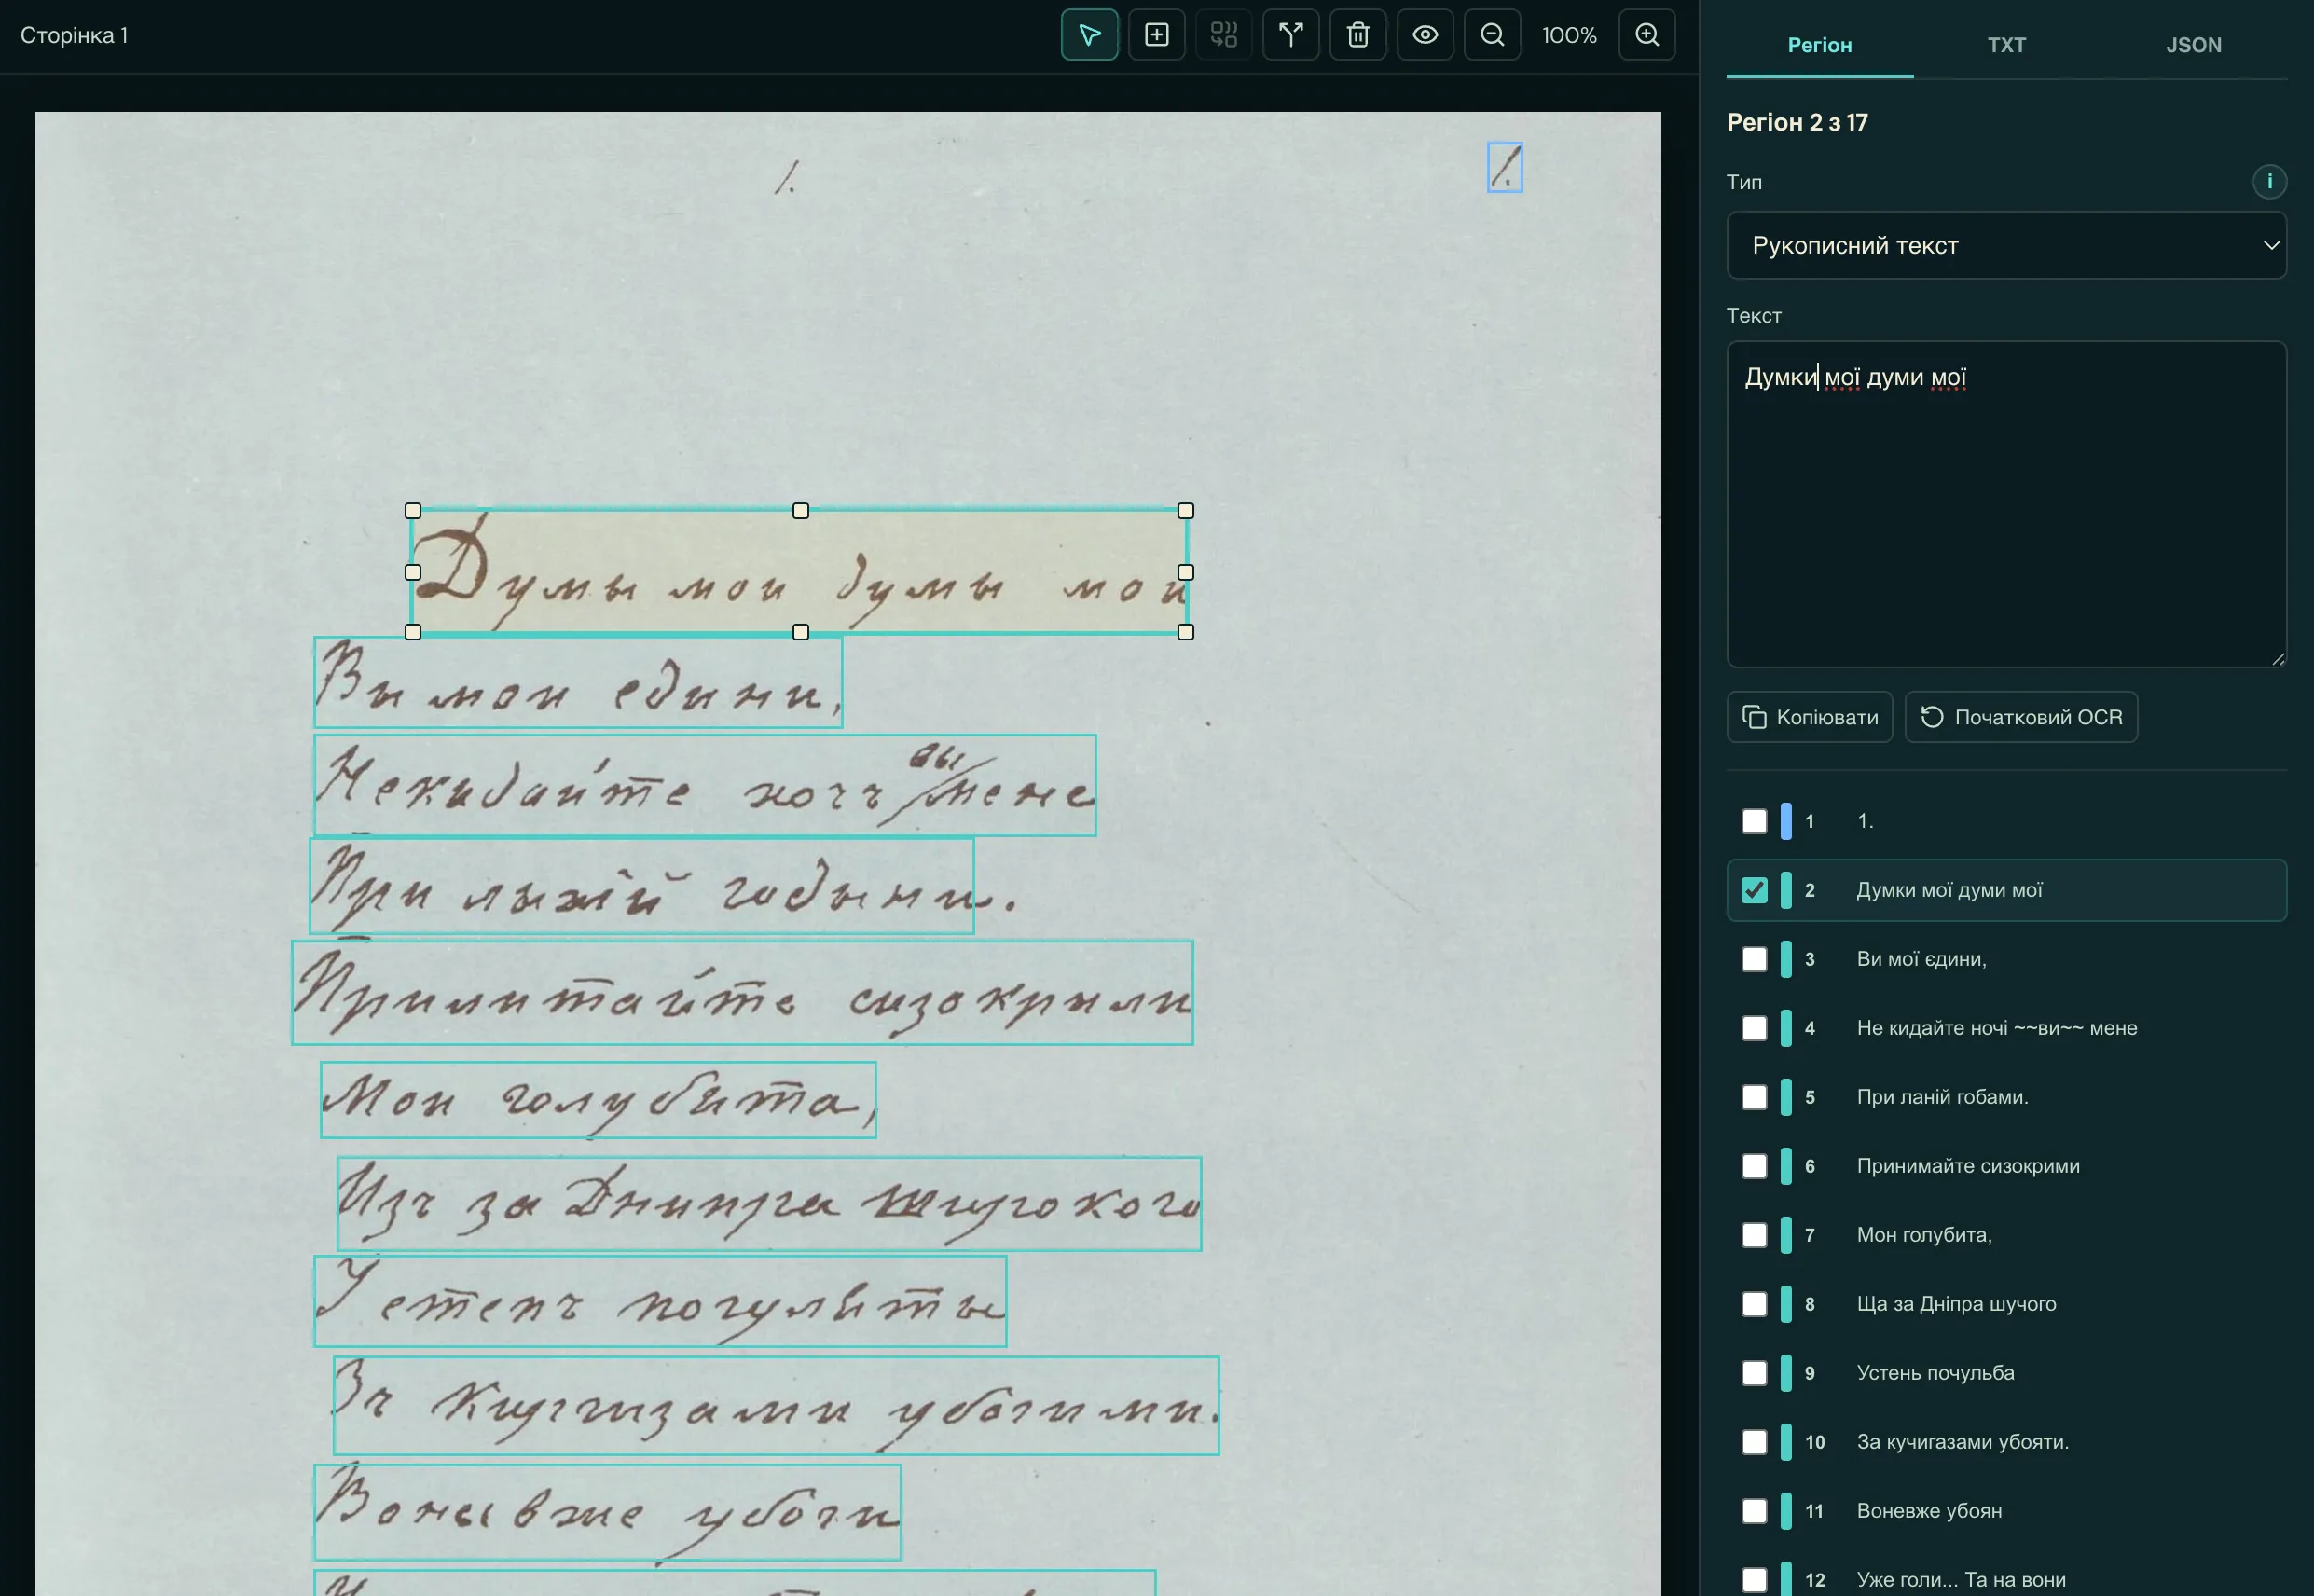 Сторінка 1
100%
1.
1.
Думы мои думы мои
Вы мои едини,
Некидайте хочъ вы мене
При лыхій годыни.
Прилитайте сизокрыли
Мои голубята,
Изъ за Днипра широкого
У степъ погуляты
Зъ Киргизами убогими.
Воны вже убоги
Регіон
TXT
JSON
Регіон 2 з 17
Тип
i
Рукописний текст
Текст
Думки мої думи мої
Копіювати
Початковий OCR
1 1.
2 Думки мої думи мої
3 Ви мої єдини,
4 Не кидайте ночі ~~ви~~ мене
5 При ланій гобами.
6 Принимайте сизокрими
7 Мон голубита,
8 Ща за Дніпра шучого
9 Устень почульба
10 За кучигазами убояти.
11 Воневже убоян
12 Уже голи... Та на вони